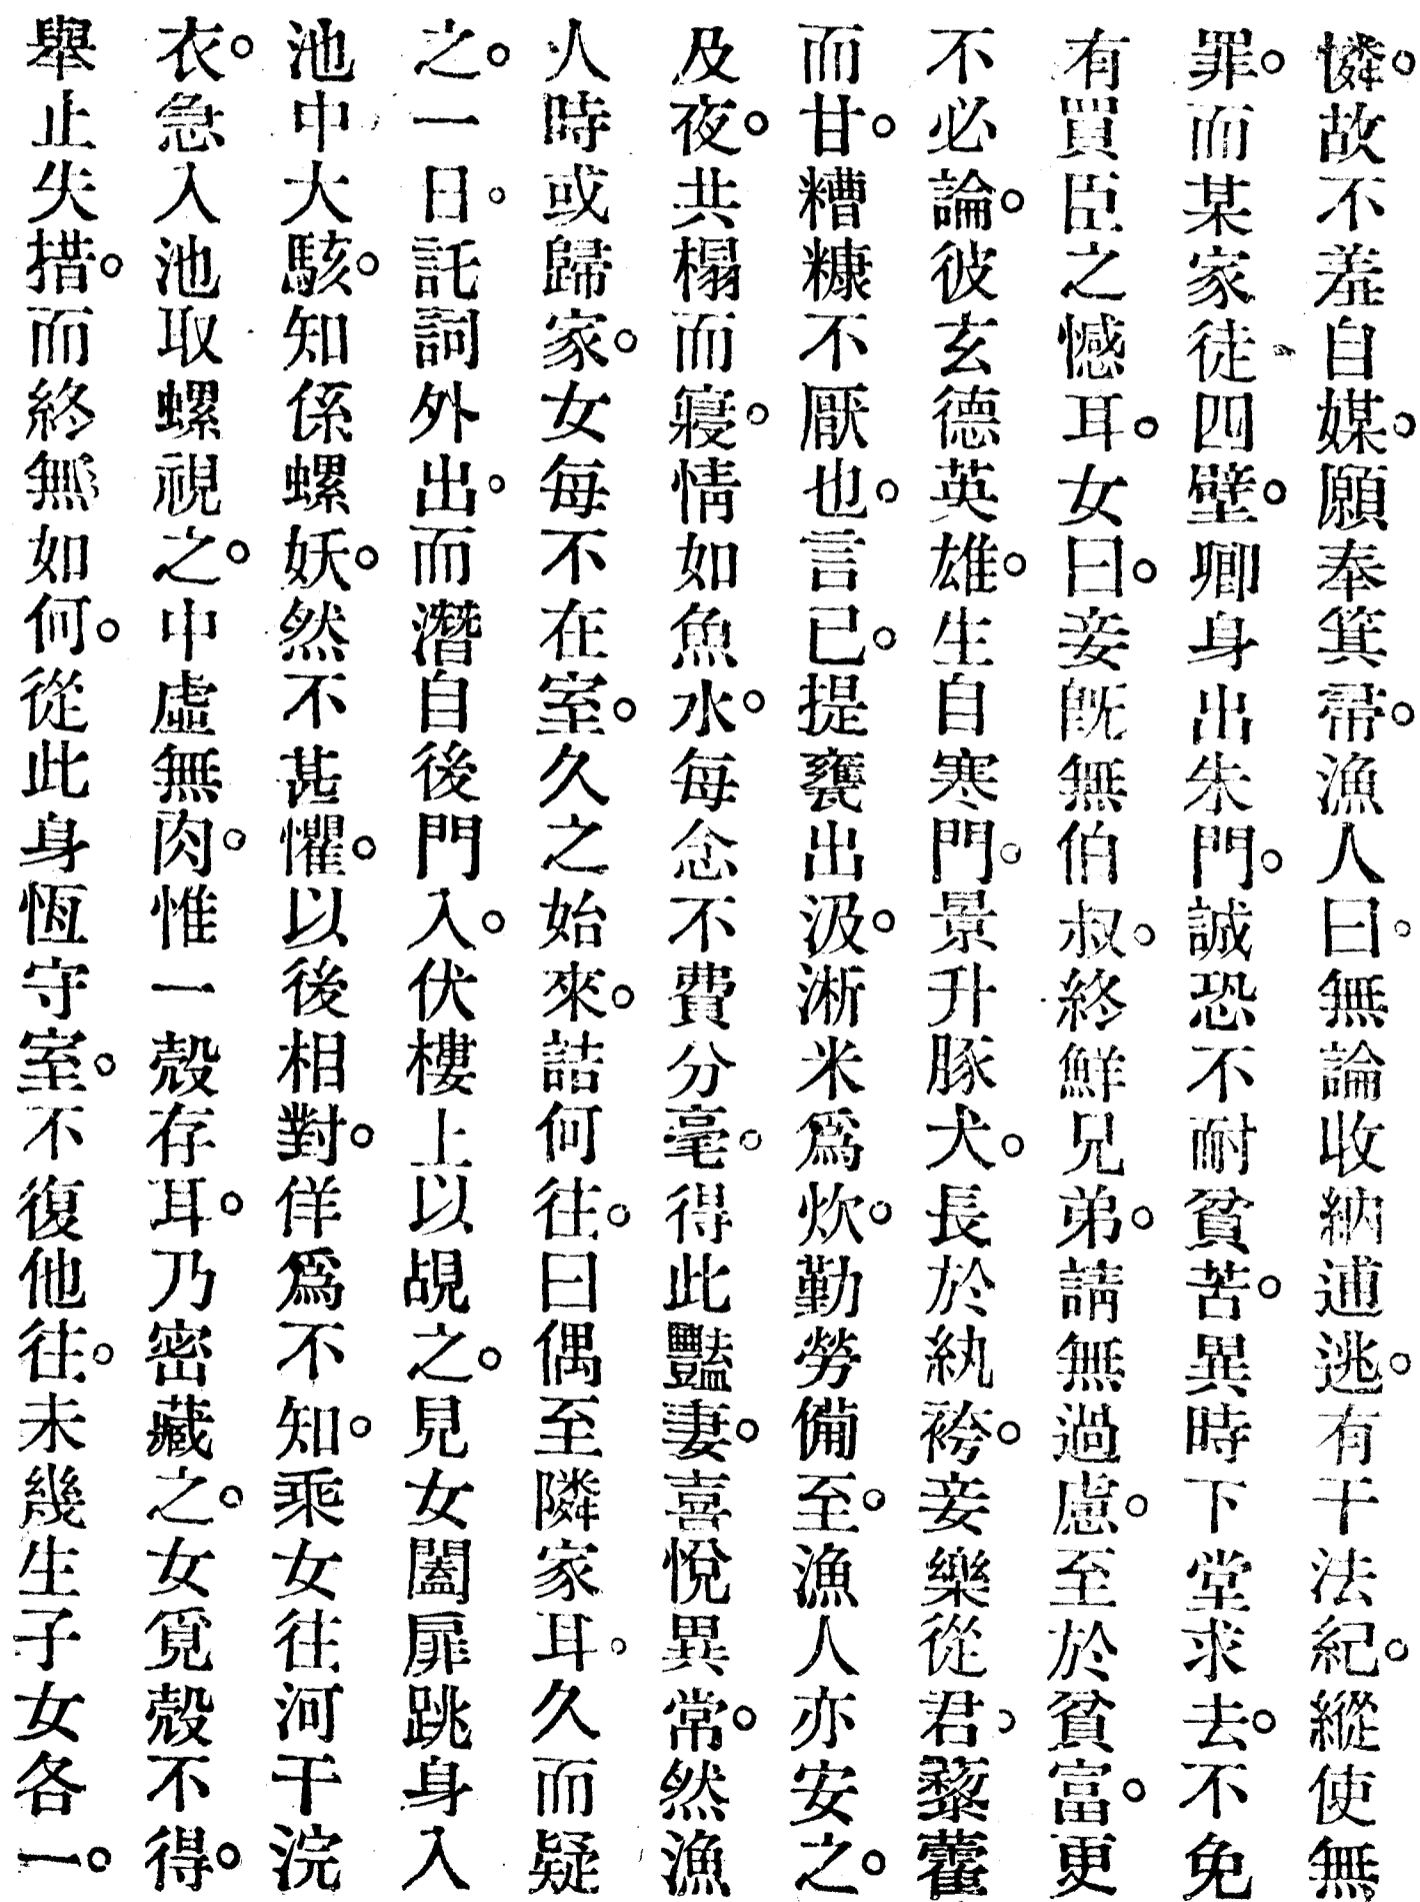 憐。故不羞自媒。願奉箕帚。漁人曰。無論收納逋逃。有干法紀。縱使無
罪。而某家徒四壁。卿身出朱門。誠恐不耐貧苦。異時下堂求去。不免
有買臣之憾耳。女曰。妾旣無伯叔。終鮮兄弟。請無過慮。至於貧富。更
不必論。彼玄德英雄。生自寒門。景升豚犬。長於紈袴。妾樂從君。藜藿
而甘。糟糠不厭也。言已。提甕出汲。淅米爲炊。勤勞備至。漁人亦安之。
及夜。共榻而寢。情如魚水。每念不費分毫。得此豔妻。喜悅異常。然漁
人時或歸家。女每不在室。久之始來。詰何往。曰偶至隣家耳。久而疑
之。一日。託詞外出。而潛自後門入。伏樓上以覘之。見女闔扉跳身入
池中大駭。知係螺妖。然不甚懼。以後相對。佯爲不知。乘女往河干浣
衣。急入池取螺視之。中虛無肉。惟一殼存耳。乃密藏之。女覓殼不得。
舉止失措。而終無如何。從此身恆守室。不復他往。未幾生子女各一。